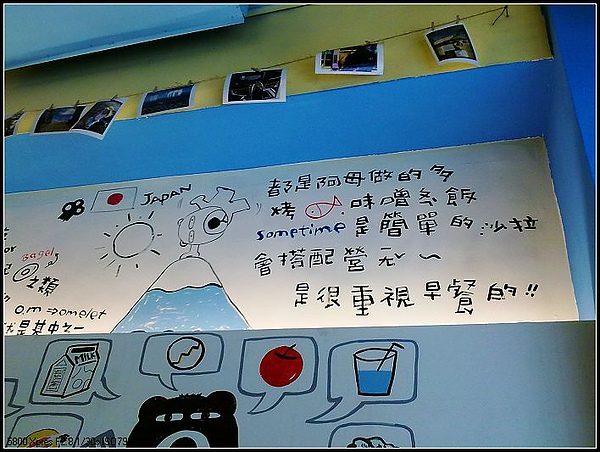 JAPAN
都是阿母做的多
烤 味噌系飯
sometime是簡單的沙拉
會搭配營元~
是很重視早餐的!!
or
Bagels
之類
o.m⇒omelet
就是其中之一
MILK